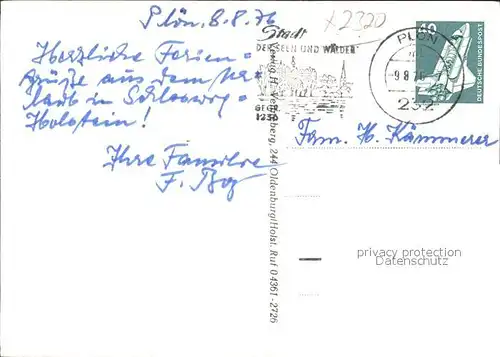 Plön, 8.8.76
Herzliche Ferien-
grüße aus dem Ur-
laub in Schleswig-
Holstein!
Ihre Familie
F. Boy
x2320
Stadt
DER SEEN UND WÄLDER
GEGR.
1236
PLÖN
-9.8.76
232
40
DEUTSCHE BUNDESPOST
Fam. H. Kämmerer
244 Oldenburg/Holst. Ruf 04361-2726
privacy protection
Datenschutz